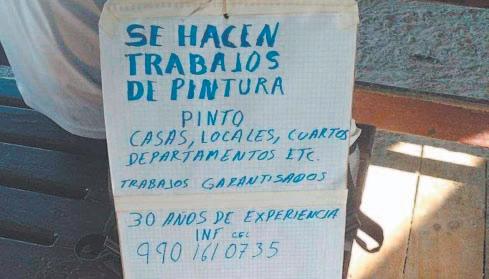 SE HACEN
TRABAJOS
DE PINTURA
PINTO
CASAS, LOCALES, CUARTOS
DEPARTAMENTOS ETC.
TRABAJOS GARANTISADOS
30 AÑOS DE EXPERIENCIA
INF CEL
990 161 0735